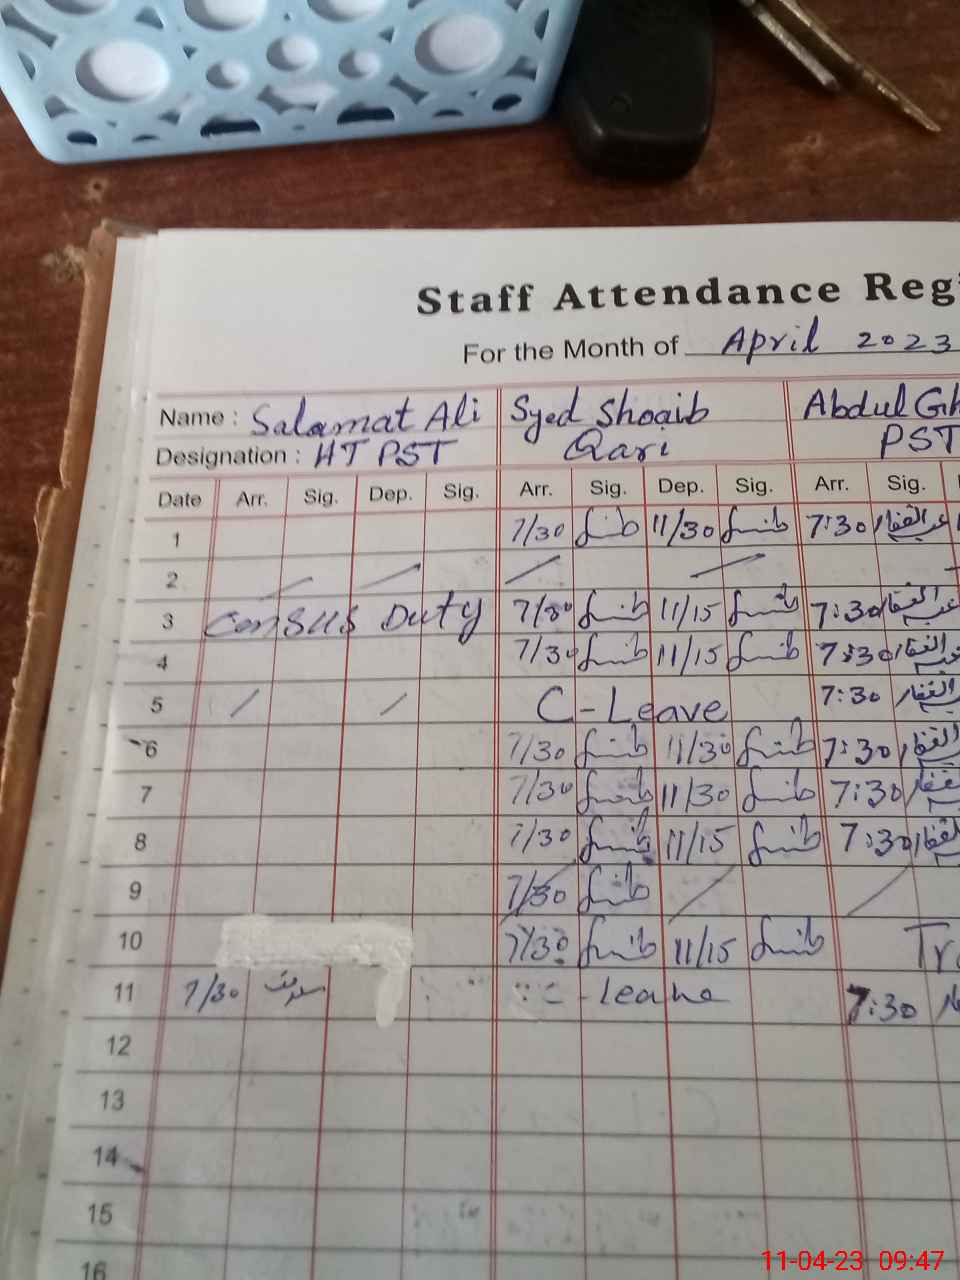 Staff Attendance Reg
For the Month of April 2023
Name : Salamat Ali Syed Shoaib Abdul Gh
Designation : HT PST Qari PST
Date Arr. Sig. Dep. Sig. Arr. Sig. Dep. Sig. Arr. Sig.
1 7/30 11/30 7:30 عبدالغفار
2
3 Census Duty 7/30 11/15 7:30 عبدالغفار
4 7/30 11/15 7:30 عبدالغفار
5 C-Leave 7:30 الغفار
6 7/30 11/30 7:30 الغفار
7 7/30 11/30 7:30
8 7/30 11/15 7:30
9 7/30
10 7/30 11/15 Tr
11 7/30 C-leave 7:30
12
13
14
15
16
11-04-23 09:47